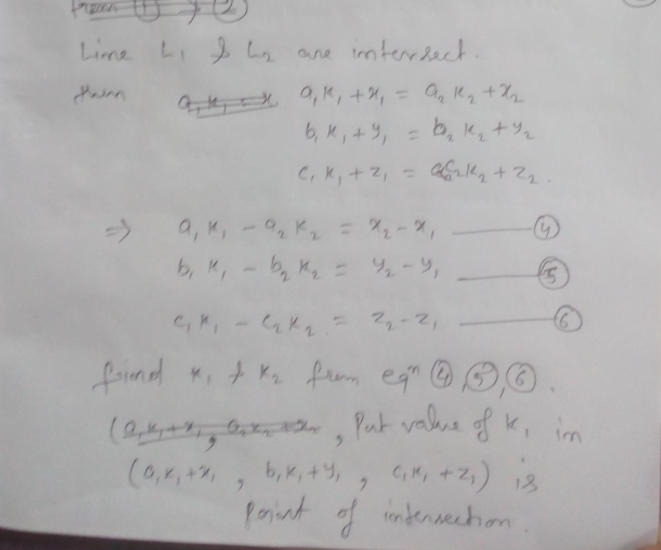 from ① & ②
Line L₁ & L₂ are intersect.
then a₁k₁ + x₁ = a₂k₂ + x₂
b₁k₁ + y₁ = b₂k₂ + y₂
c₁k₁ + z₁ = c₂k₂ + z₂.
⇒ a₁k₁ - a₂k₂ = x₂ - x₁ —— ④
b₁k₁ - b₂k₂ = y₂ - y₁ —— ⑤
c₁k₁ - c₂k₂ = z₂ - z₁ —— ⑥
faind k₁ & k₂ from eqⁿ ④, ⑤, ⑥.
(a₁k₁+x₁, a₂k₂+x₂, Put value of k₁ in
(a₁k₁+x₁, b₁k₁+y₁, c₁k₁+z₁) is
Point of intersection.